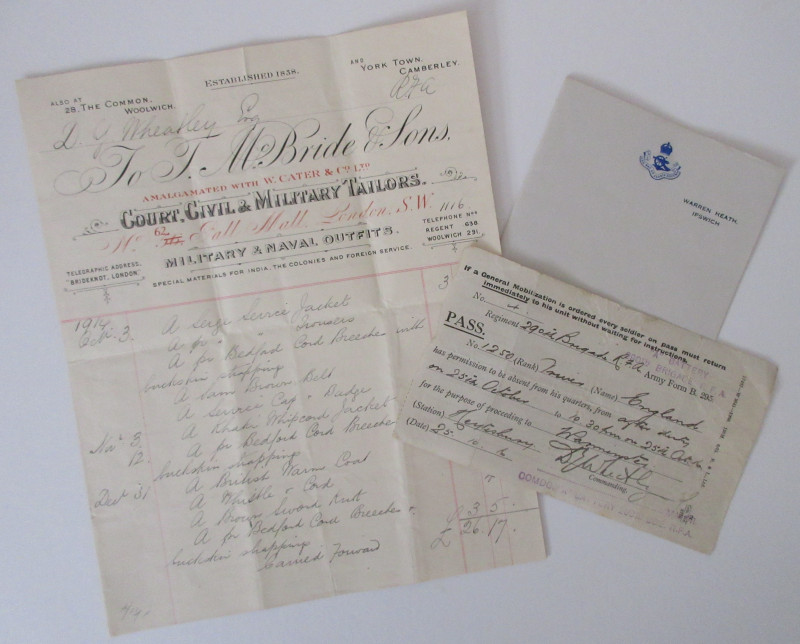 ESTABLISHED 1858.
ALSO AT
28, THE COMMON,
WOOLWICH.
AND YORK TOWN,
CAMBERLEY.
RFA
D. G. Wheatley Esq
To T. McBride & Sons.
AMALGAMATED WITH W. CATER & Co. LTD
COURT, CIVIL & MILITARY TAILORS.
No. 62 Pall Mall, London, S.W. 1106
MILITARY & NAVAL OUTFITS.
TELEGRAPHIC ADDRESS,
"BRIDEKNOT, LONDON."
TELEPHONE Nos
REGENT 658
WOOLWICH 291.
SPECIAL MATERIALS FOR INDIA, THE COLONIES AND FOREIGN SERVICE.
1914
Oct. 3. A Serge Service Jacket
A pr " " Trousers
A pr Bedford Cord Breeches with
buckskin strapping
A Sam Brown Belt
A Service Cap & Badge
Nov 3 A Khaki Whipcord Jacket
12. A pr Bedford Cord Breeches
buckskin strapping
Dec 31 A British Warm Coat
A Whistle & Cord
A Brown Sword Knot
A pr Bedford Cord Breeches
buckskin strapping
Carried Forward
3 5 -
£ 26.17.
WARREN HEATH,
IPSWICH
If a General Mobilization is ordered every soldier on pass must return
immediately to his unit without waiting for instructions.
No. 4
PASS.
Regiment 29th Brigade RFA Army Form B. 295
No. 1250 (Rank) Driver (Name) England
has permission to be absent from his quarters, from after duty
on 25th October to 10.30pm on 25th Oct
for the purpose of proceeding to Warminster
(Station) Heytesbury
(Date) 25. 10.
Commanding.